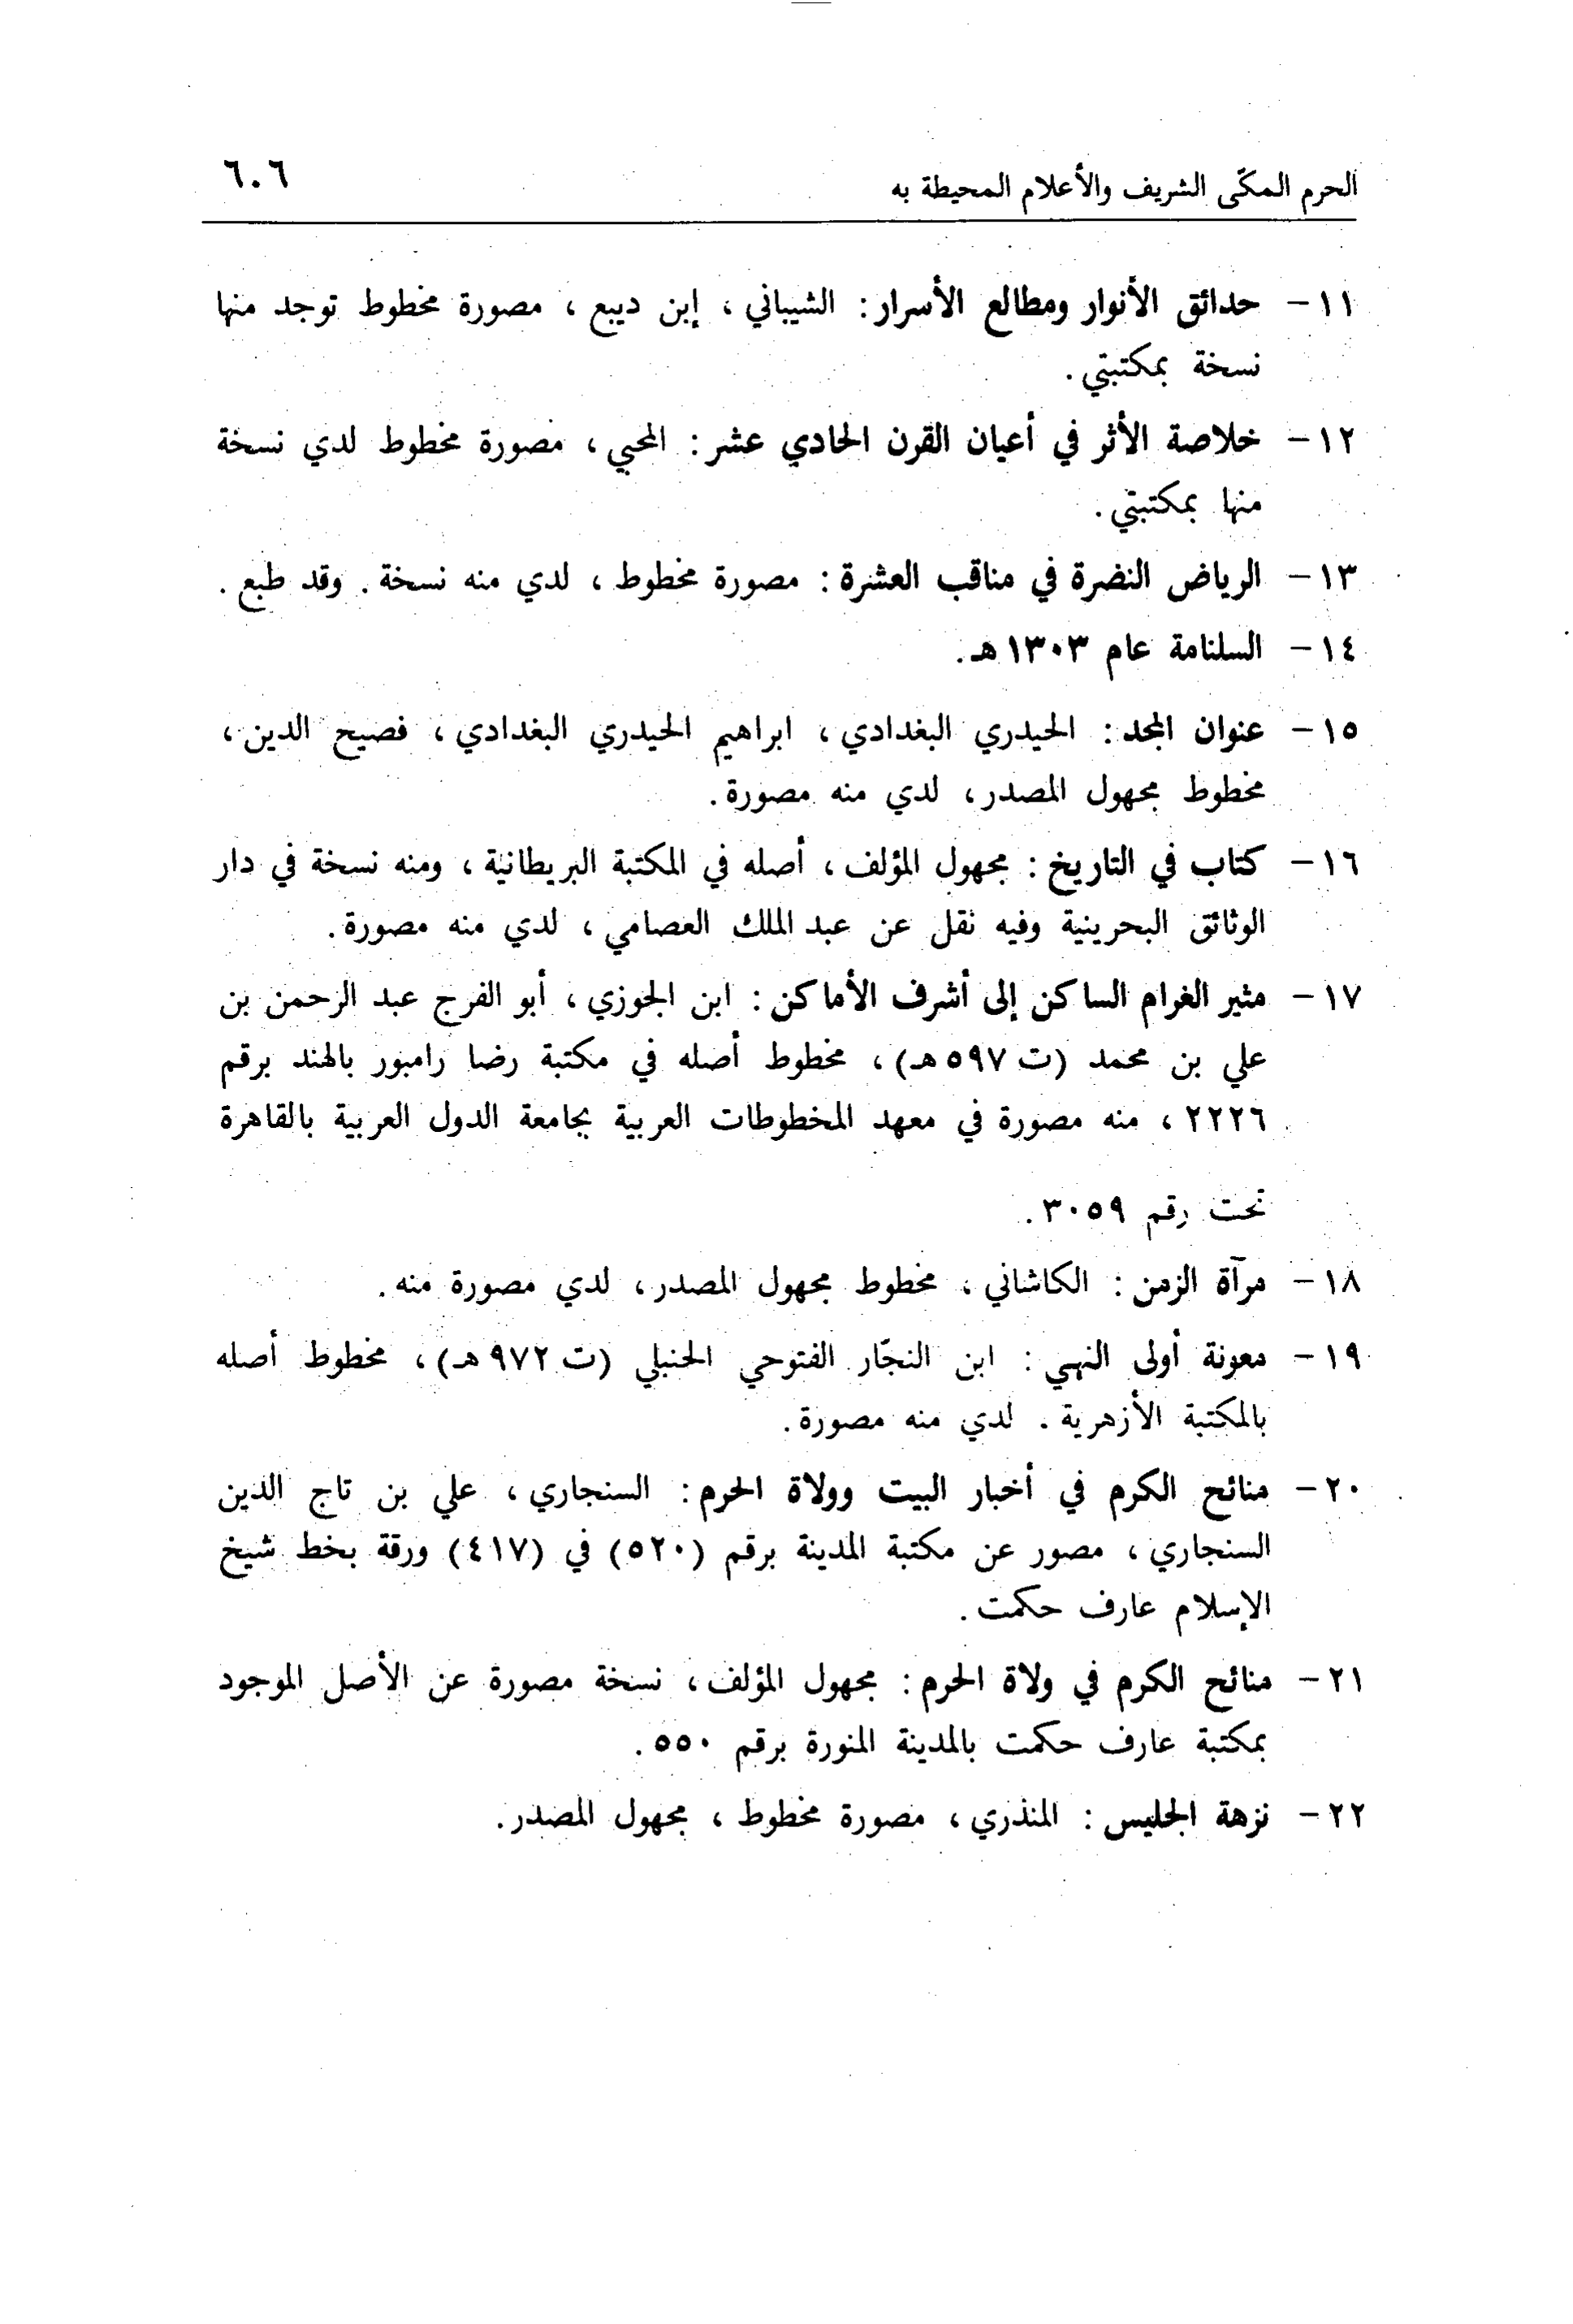 الحرم المكّى الشريف والأعلام المحيطة به
٦٠٦
١١- حدائق الأنوار ومطالع الأسرار: الشيباني، إبن ديبع، مصورة مخطوط توجد منها
نسخة بمكتبتي.
١٢- خلاصة الأثر في أعيان القرن الحادي عشر: المحبي، مصورة مخطوط لدي نسخة
منها بمكتبتي.
١٣- الرياض النضرة في مناقب العشرة: مصورة مخطوط، لدي منه نسخة. وقد طبع.
١٤- السلنامة عام ١٣٠٣هـ.
١٥- عنوان المجد: الحيدري البغدادي، ابراهيم الحيدري البغدادي، فصيح الدين،
مخطوط مجهول المصدر، لدي منه مصورة.
١٦- كتاب في التاريخ: مجهول المؤلف، أصله في المكتبة البريطانية، ومنه نسخة في دار
الوثائق البحرينية وفيه نقل عن عبد الملك العصامي، لدي منه مصورة.
١٧- مثير الغرام الساكن إلى أشرف الأماكن: ابن الجوزي، أبو الفرج عبد الرحمن بن
علي بن محمد (ت ٥٩٧هـ)، مخطوط أصله في مكتبة رضا رامبور بالهند برقم
٢٢٢٦، منه مصورة في معهد المخطوطات العربية بجامعة الدول العربية بالقاهرة
تحت رقم ٣٠٥٩.
١٨- مرآة الزمن: الكاشاني، مخطوط مجهول المصدر، لدي مصورة منه.
١٩- معونة أولى النهي: ابن النجّار الفتوحي الحنبلي (ت ٩٧٢هـ)، مخطوط أصله
بالمكتبة الأزهرية. لدي منه مصورة.
٢٠- منائح الكرم في أخبار البيت وولاة الحرم: السنجاري، علي بن تاج الدين
السنجاري، مصور عن مكتبة المدينة برقم (٥٢٠) في (٤١٧) ورقة بخط شيخ
الإسلام عارف حكمت.
٢١- منائح الكرم في ولاة الحرم: مجهول المؤلف، نسخة مصورة عن الأصل الموجود
بمكتبة عارف حكمت بالمدينة المنورة برقم ٥٥٠.
٢٢- نزهة الجليس: المنذري، مصورة مخطوط، مجهول المصدر.